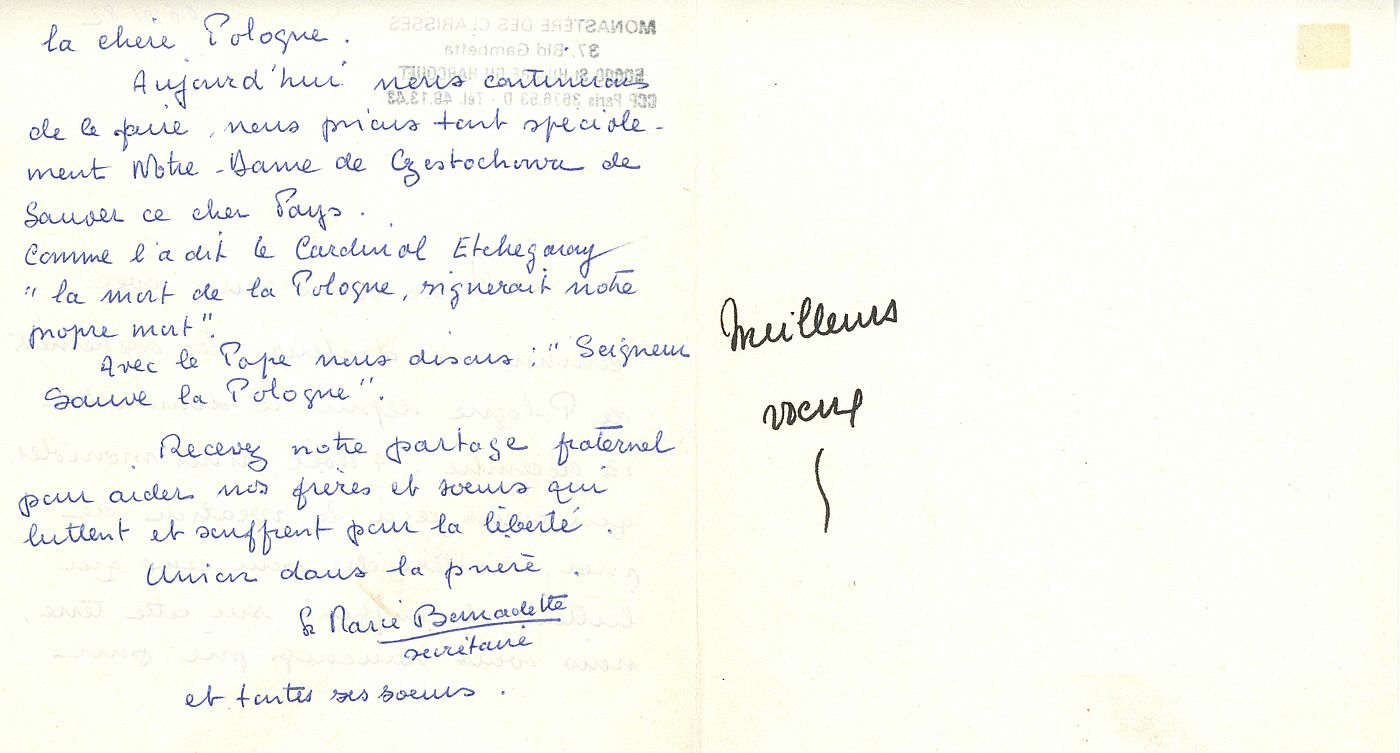 la chère Pologne.
Aujourd'hui nous continuons
de le faire, nous prions tout spéciale-
ment Notre-Dame de Częstochowa de
Sauver ce cher Pays.
Comme l'a dit le Cardinal Etchegaray
"la mort de la Pologne, signerait notre
propre mort".
Avec le Pape nous disons : "Seigneur
Sauve la Pologne".
Recevez notre partage fraternel
pour aider nos frères et soeurs qui
luttent et souffrent pour la liberté.
Union dans la prière.
Sr Marie Bernadette
secrétaire
et toutes ses soeurs.
MONASTÈRE DES CLARISSES
37, Bld Gambetta
CCP Paris 3676.53 D - Tél. 49.13.43
Meilleurs
voeux